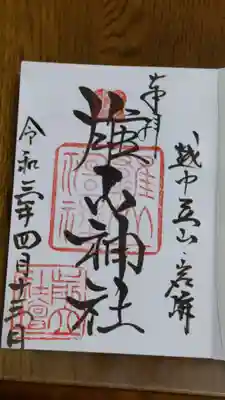 越中立山・岩峅
奉拝
雄山神社
令和三年四月十三日